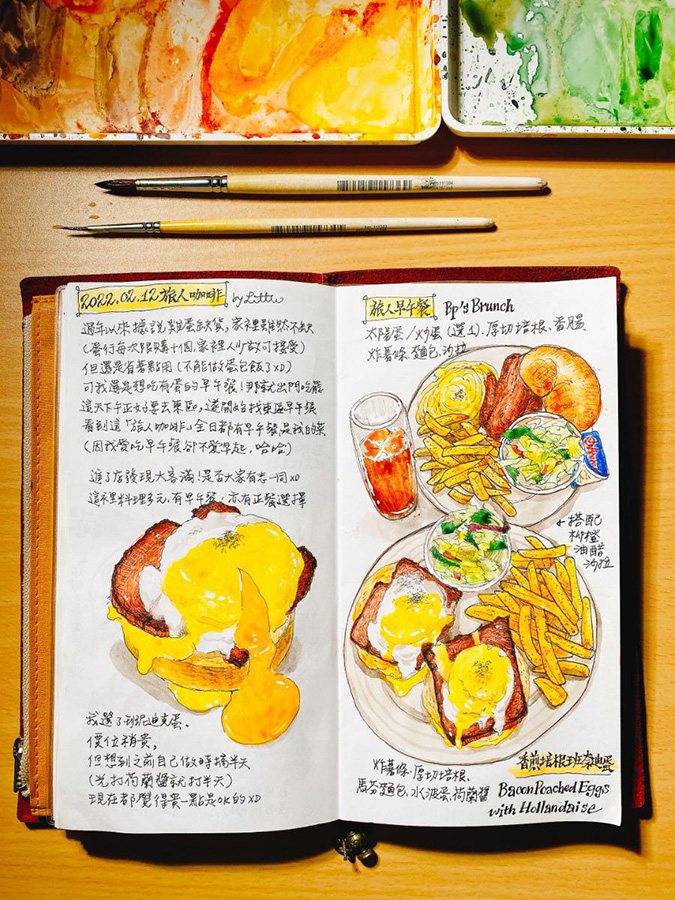 2022.02.12 旅人咖啡
過年以來據說雞蛋缺貨,家裡雖然不缺
(蛋行每次限購十個,家裡人少故可接受)
但還是省著點用(不能做蛋包飯了XD)
可我還是想吃有蛋的早午餐!那就出門吃罷
這天下午正好要去東區,遂開始找東區早午餐
看到這「旅人咖啡」,全日都有早午餐是我的菜
(因我愛吃早午餐卻不愛早起,哈哈)
進了店發現大客滿!是否大家有志一同XD
這裡料理多元,有早午餐,亦有正餐選擇
我選了班尼迪克蛋。
價位稍貴,
但想到之前自己做時搞半天
(光打荷蘭醬就打半天)
現在都覺得貴一點是OK的XD
旅人早午餐 Bp's Brunch
太陽蛋/炒蛋(選1).厚切培根.香腸
炸薯條.麵包.沙拉
←搭配
柳橙
油醋
沙拉
炸薯條.厚切培根.
馬芬麵包.水波蛋.荷蘭醬
香煎培根班泰迪蛋
Bacon Poached Eggs
with Hollandaise